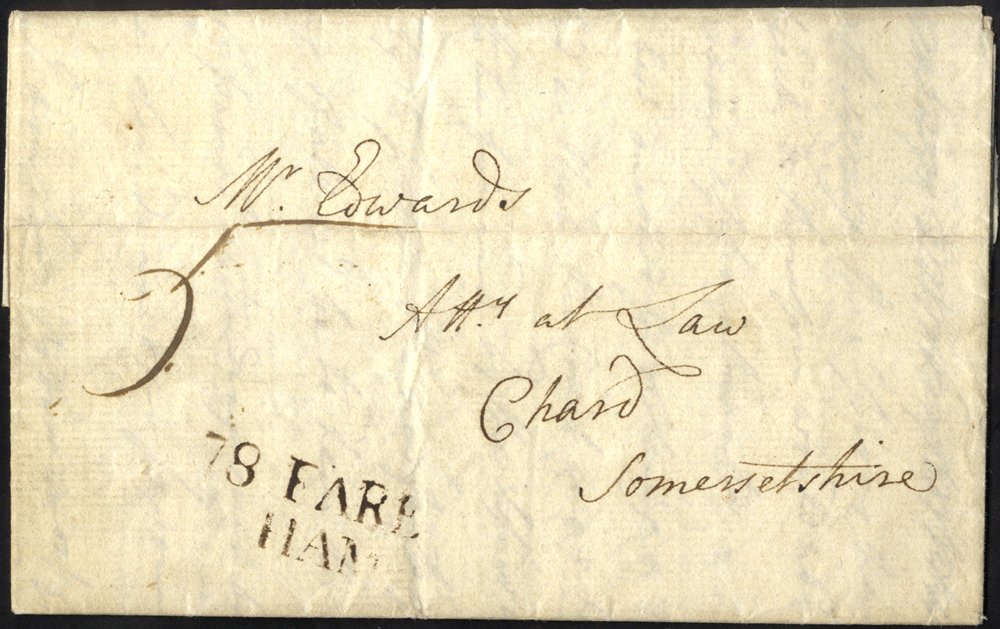 Mr. Edwards
5
Atty. at Law
Chard
Somersetshire
78 FARE
HAM